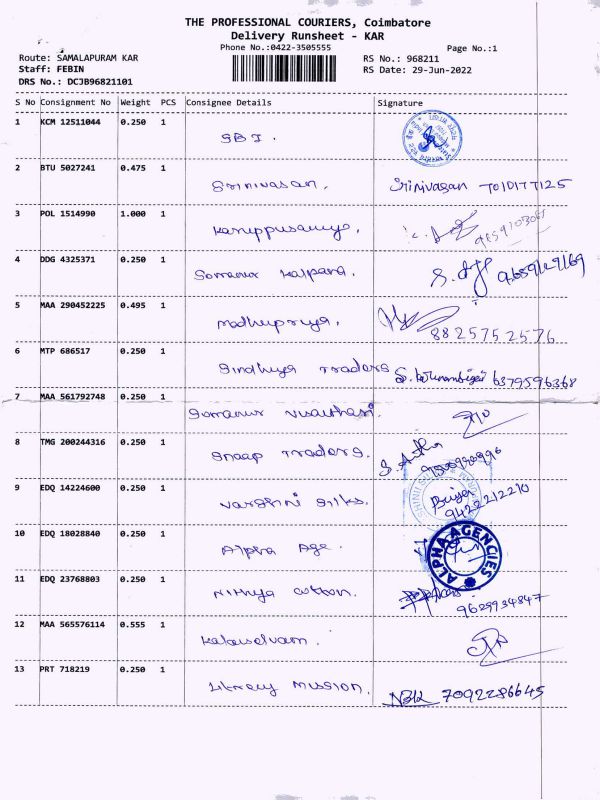 THE PROFESSIONAL COURIERS, Coimbatore
Delivery Runsheet - KAR
Phone No.:0422-3505555
Page No.:1
Route: SAMALAPURAM KAR
RS No.: 968211
Staff: FEBIN
RS Date: 29-Jun-2022
DRS No.: DCJB96821101
S No Consignment No Weight PCS Consignee Details Signature
1 KCM 12511044 0.250 1 SBI.
2 BTU 5027241 0.475 1 Srinivasan. Srinivasan 7010177125
3 POL 1514990 1.000 1 Karuppusamy.
4 DDG 4325371 0.250 1 Somanur Kalpana.
5 MAA 290452225 0.495 1 Madhupriya. 8825752576
6 MTP 686517 0.250 1 Sindhiya Traders 6379596368
7 MAA 561792748 0.250 1 Somanur
8 TMG 200244316 0.250 1 Snaap Traders.
9 EDQ 14224600 0.250 1 Varshni Silks. Priya
9422212210
10 EDQ 18028840 0.250 1 Alpha Age. ALPHA AGENCIES
11 EDQ 23768803 0.250 1 Nithya Cotton.
9629934847
12 MAA 565576114 0.555 1 Kalaiselvam.
13 PRT 718219 0.250 1 Literacy Mission. 7092286645